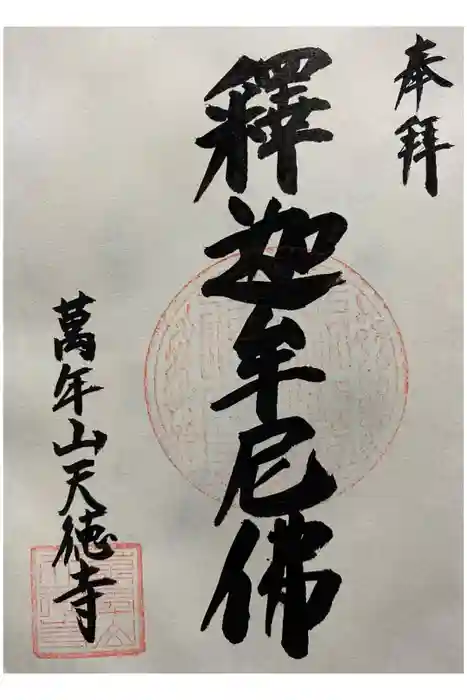 奉拜
釋迦牟尼佛
萬年山天徳寺